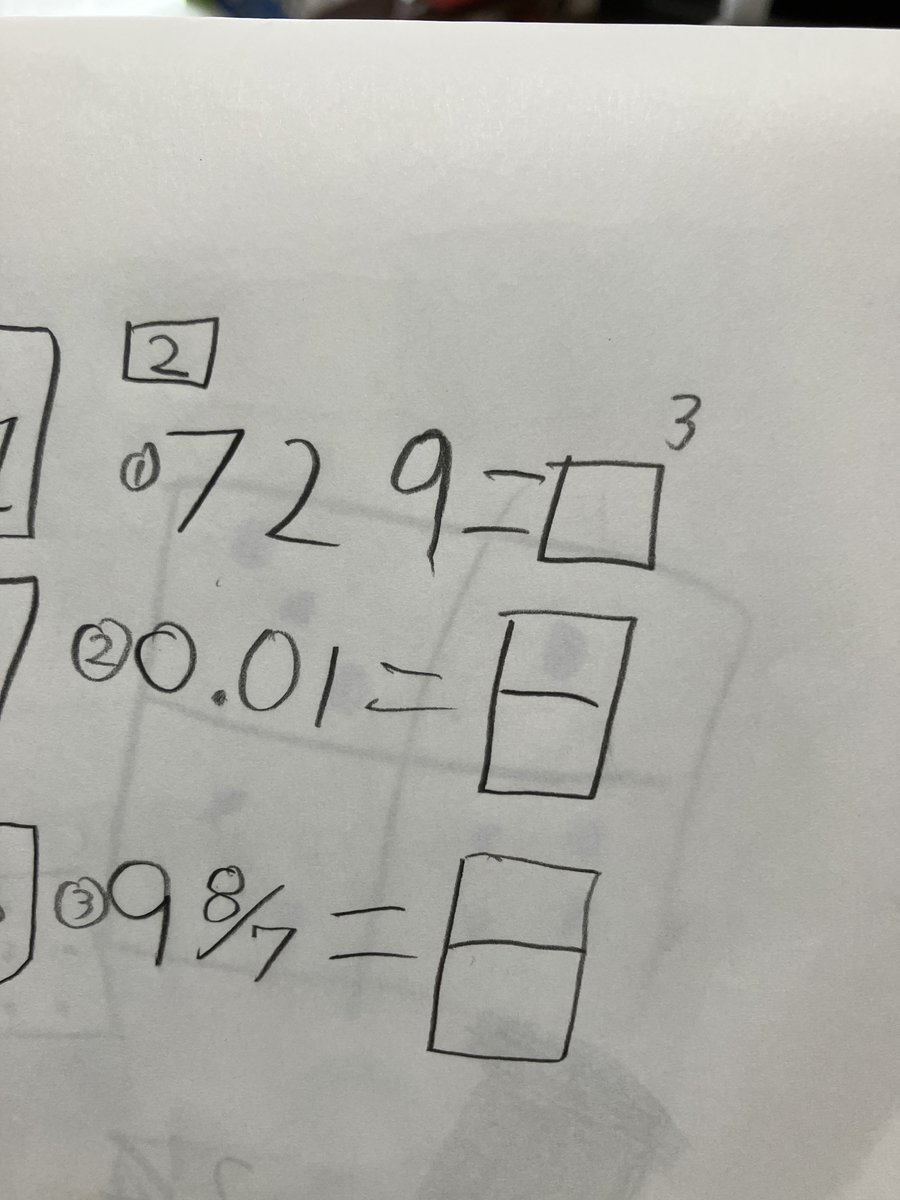 2
①729=□³
②0.01=
③9 8/7=